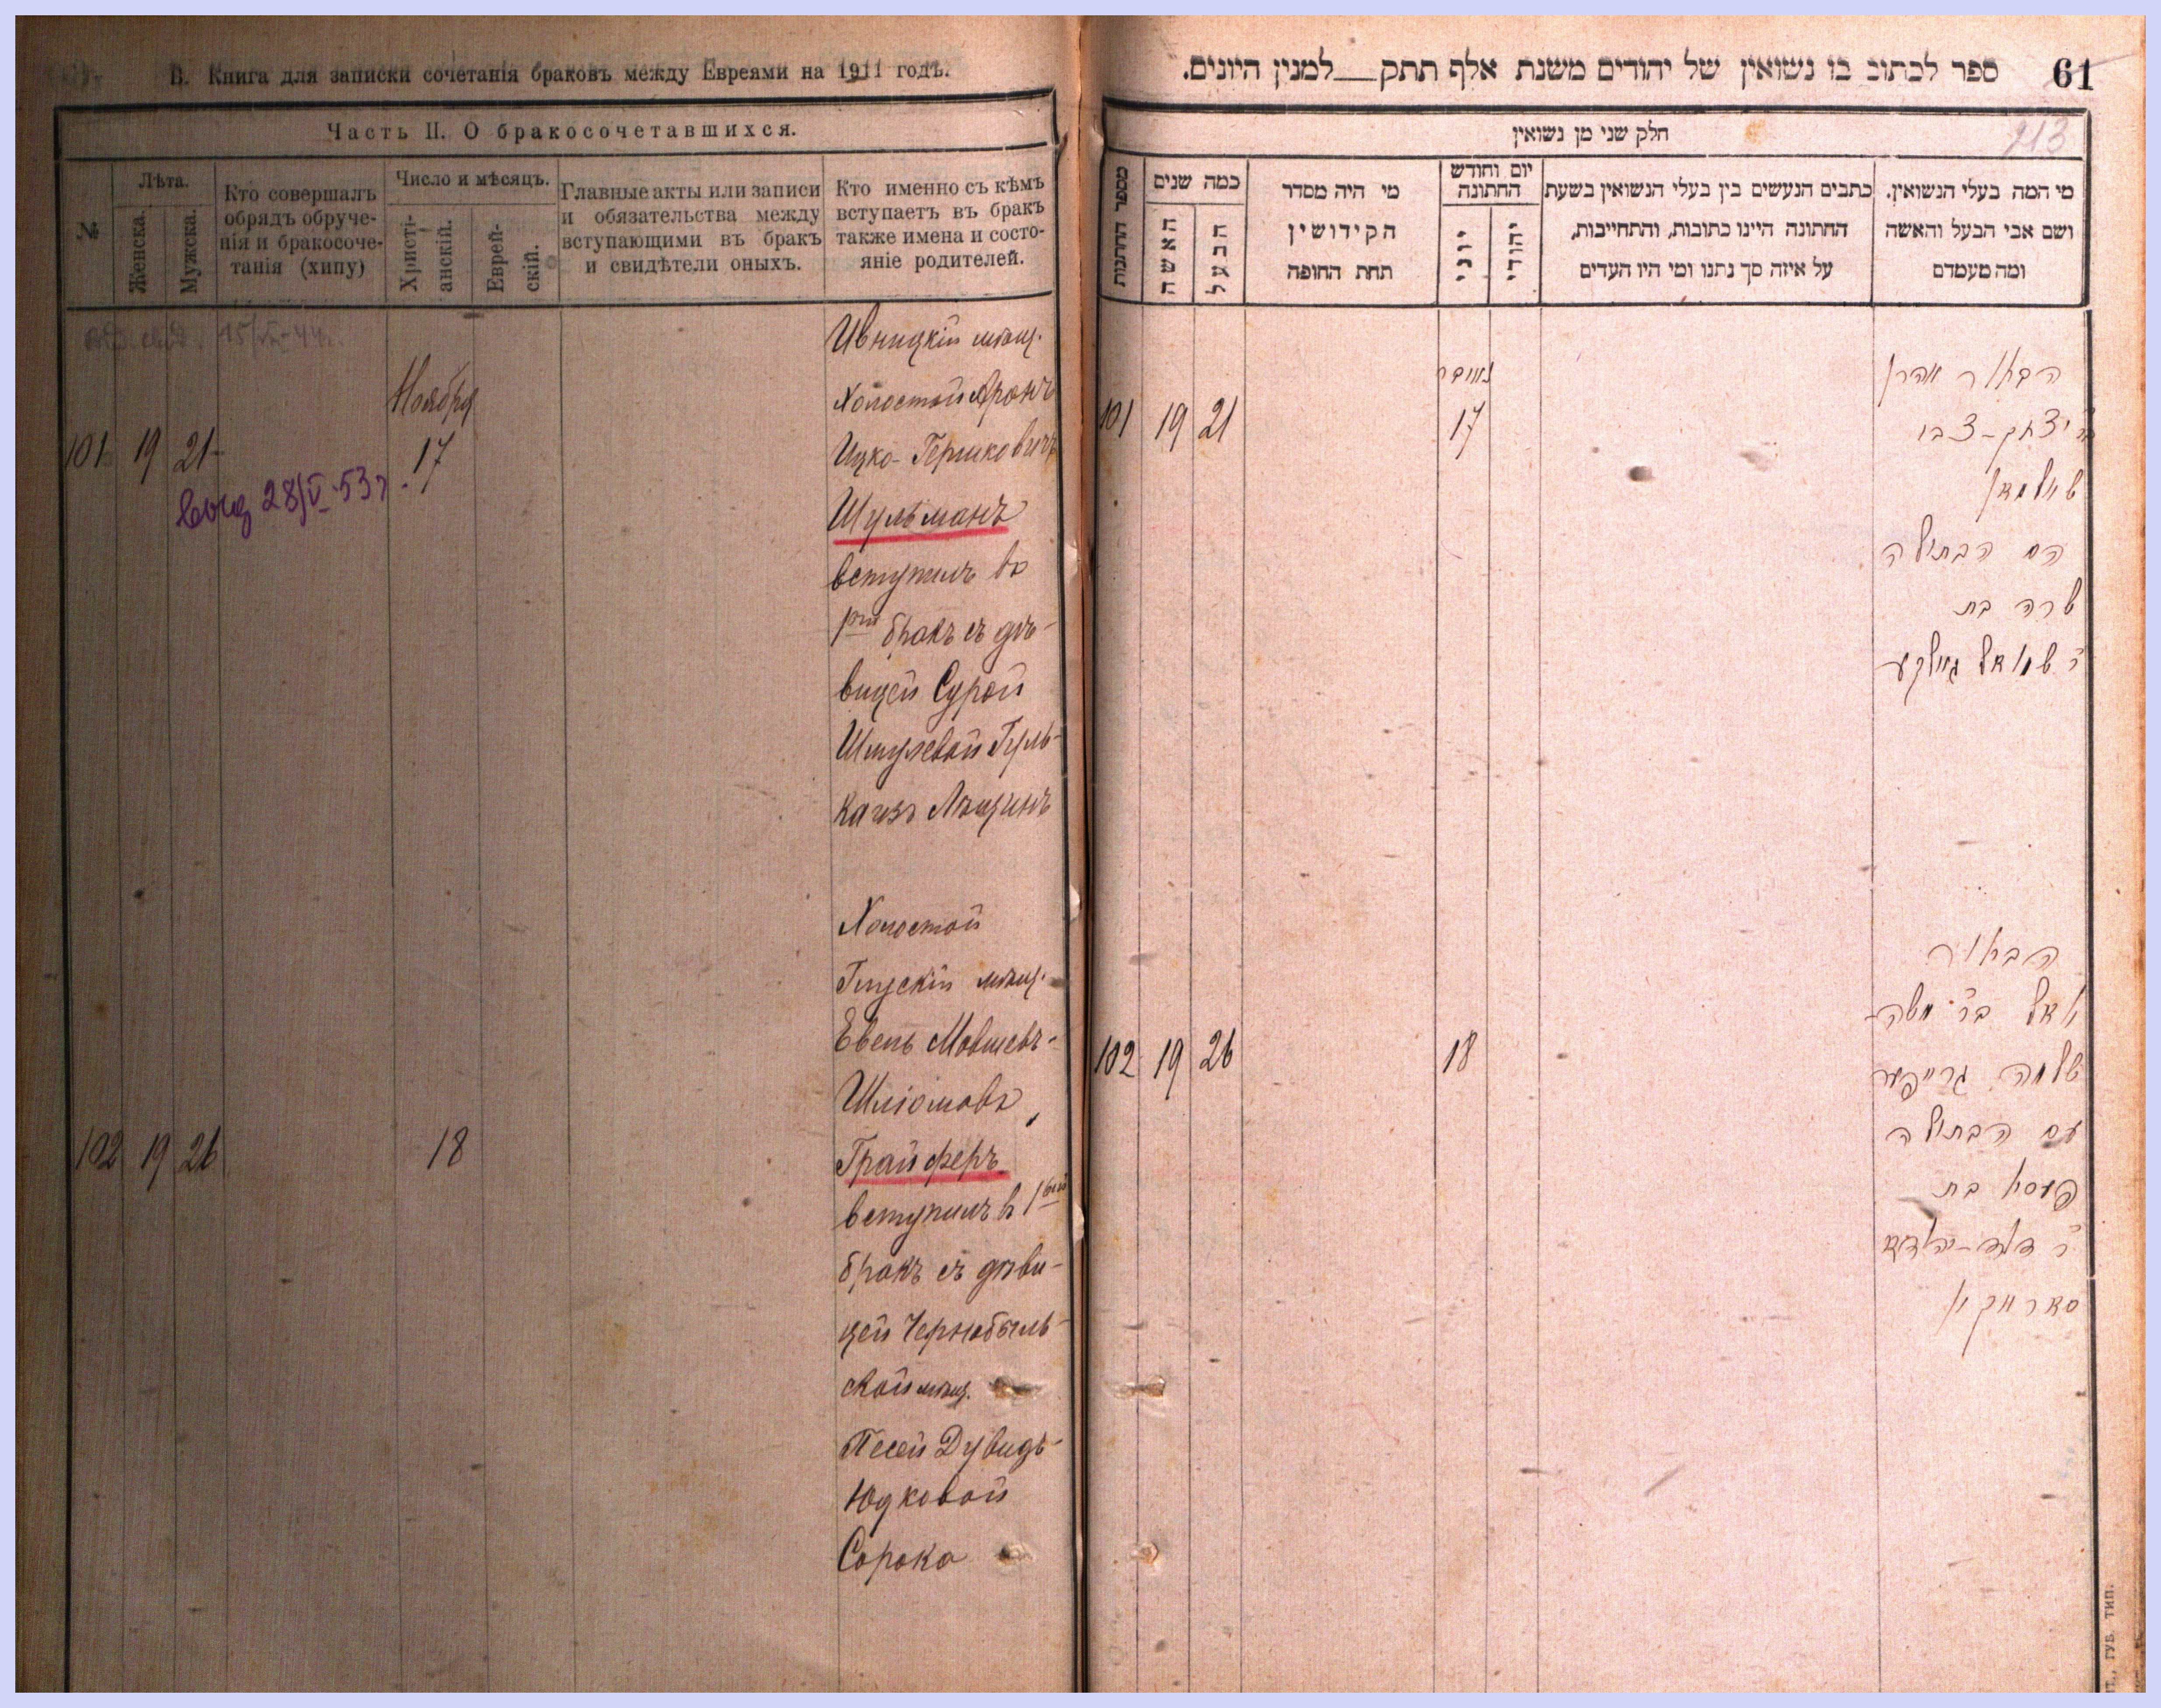 В. Книга для записки сочетанія браковъ между Евреями на 1911 годъ.
Часть II. О бракосочетавшихся.
№
Лѣта.
Женска.
Мужска.
Кто совершалъ
обрядъ обруче-
нія и бракосоче-
танія (хипу)
Число и мѣсяцъ.
Христі-
анскій.
Еврей-
скій.
Главные акты или записи
и обязательства между
вступающими въ бракъ
и свидѣтели оныхъ.
Кто именно съ кѣмъ
вступаетъ въ бракъ
также имена и состо-
яніе родителей.
Ноября
101 19 21 17
28/V-53г.
Ивницкій мѣщ.
Холостой Аронъ
Ицко-Гершковичъ
Шульманъ
вступилъ въ
1ый бракъ съ дѣ-
вицей Сурой
Шмулевой Гуль-
ка изъ Лещинъ
102 19 26 18
Холостой
Глускій мѣщ.
Евель Мовшевъ-
Шліомовъ
Грайферъ
вступилъ въ 1ый
бракъ съ дѣви-
цей Чернобыль-
ской мѣщ.
Песей Дувидъ-
Юдковой
Сорока
ספר לכתוב בו נשואין של יהודים משנת אלף תתק__למנין היונים.
61
חלק שני מן נשואין
213
מספר החתנות
כמה שנים
האשה
הבעל
מי היה מסדר
הקידושין
תחת החופה
יום וחודש
החתונה
יוני
יהודי
כתבים הנעשים בין בעלי הנשואין בשעת
החתונה היינו כתובות, והתחייבות,
על איזה סך נתנו ומי היו העדים
מי המה בעלי הנשואין.
ושם אבי הבעל והאשה
ומה מעמדם
נאיבר
101 19 21 17
הבחור אהרן
יצחק-צבי
שולמאן
עם הבתולה
שרה בת
ר' שמואל גולקע
102 19 26 18
הבחור
יואל בר' משה-
שלמה גרייפער
עם הבתולה
פעסי בת
ר' דוד-יהודא
סאראקי
ГУБ. ТИП.